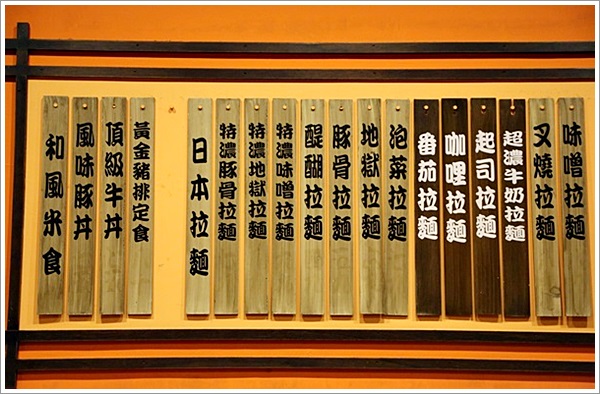 和風米食
風味豚丼
頂級牛丼
黃金豬排定食
日本拉麵
特濃豚骨拉麵
特濃地獄拉麵
特濃味噌拉麵
醍醐拉麵
豚骨拉麵
地獄拉麵
泡菜拉麵
番茄拉麵
咖哩拉麵
起司拉麵
超濃牛奶拉麵
叉燒拉麵
味噌拉麵